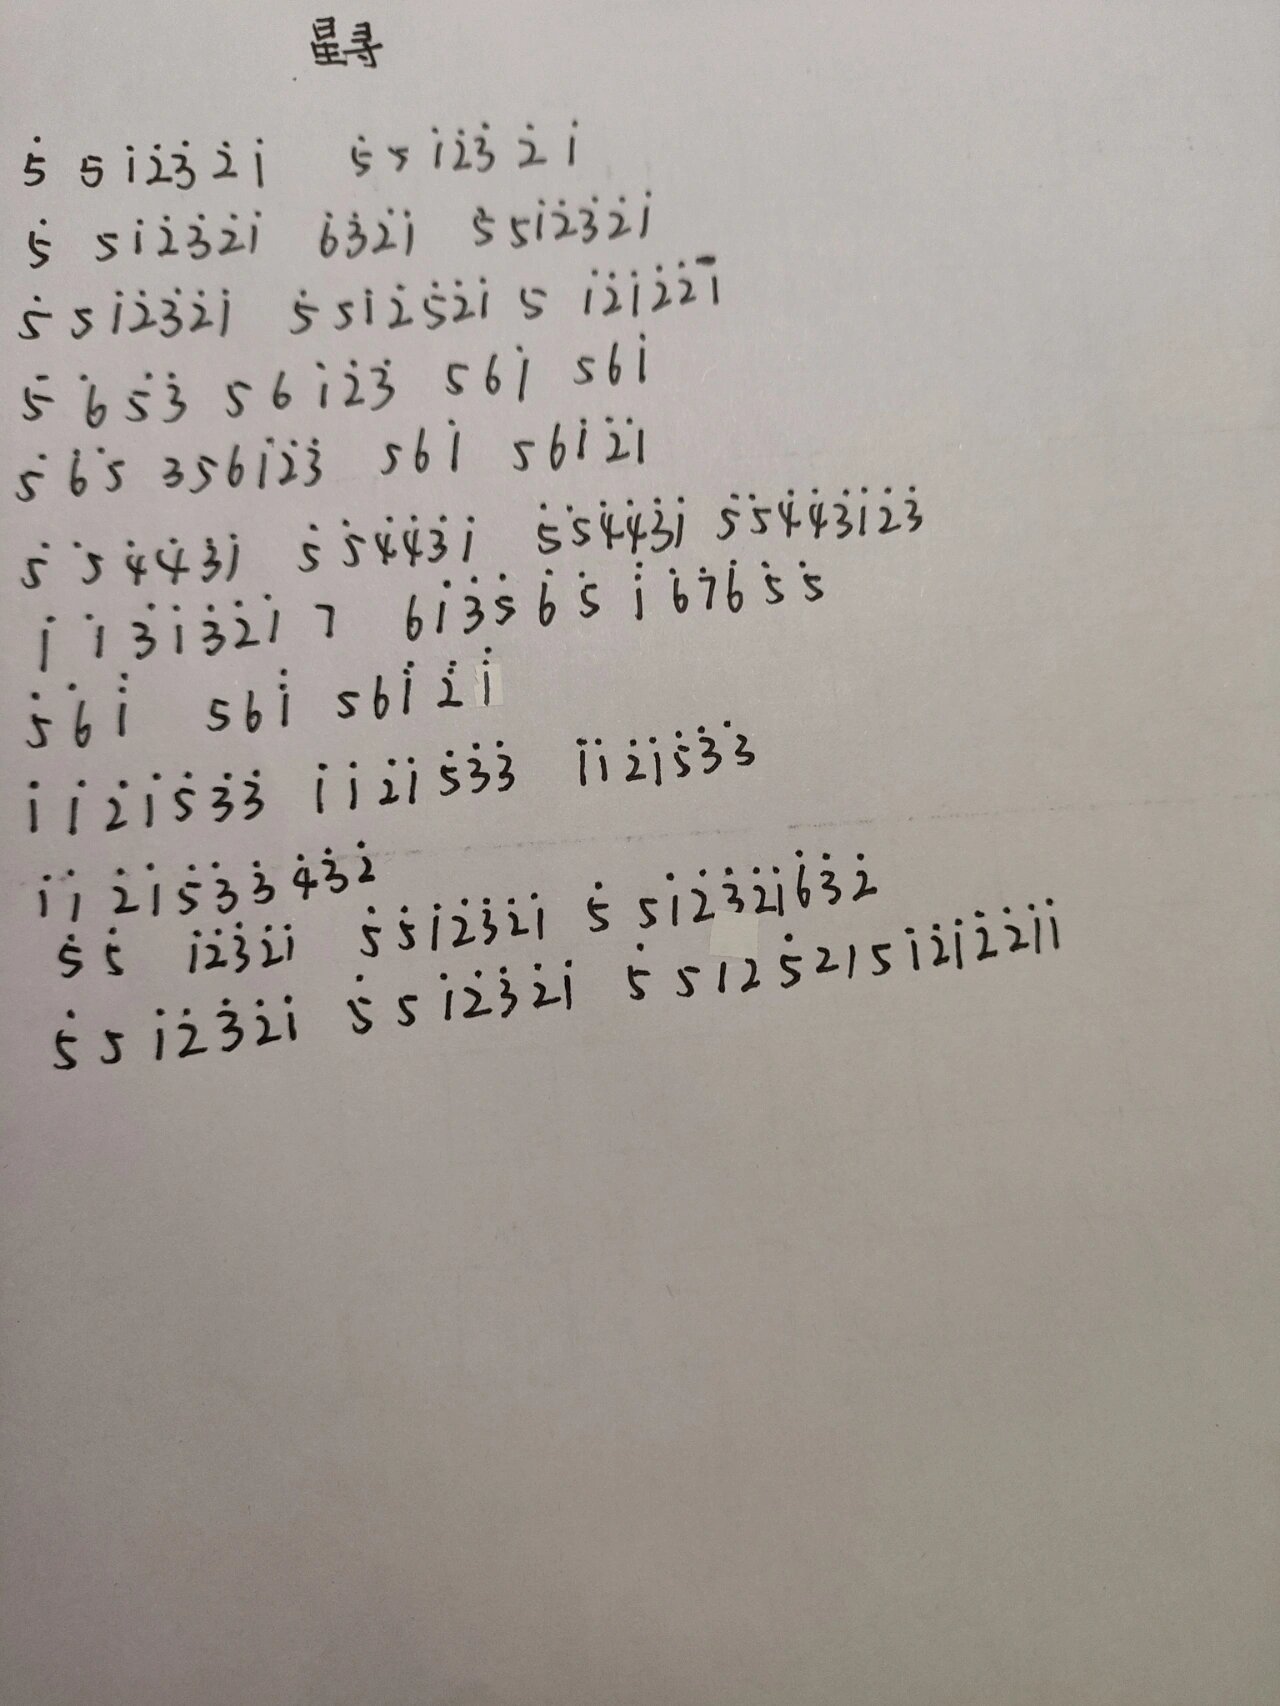 星寻
5̇ 5 1̇2̇3̇ 2̇ 1̇ 5̇ 5 1̇2̇3̇ 2̇ 1̇
5̇ 5 1̇2̇3̇2̇1̇ 6̇3̇2̇1̇ 5̇ 51̇2̇3̇2̇1̇
5̇ 5 1̇2̇3̇2̇1̇ 5̇ 51̇2̇5̇2̇1̇ 5 1̇2̇1̇2̇2̇1̇
5̇ 6̇ 5̇3̇ 5 6 1̇2̇3̇ 561̇ 561̇
5̇ 6̇ 5̇ 3561̇2̇3̇ 561̇ 561̇2̇1̇
5̇ 5̇ 4̇4̇3̇1̇ 5̇ 5̇4̇4̇3̇1̇ 5̇5̇4̇4̇3̇1̇ 5̇5̇4̇4̇3̇1̇2̇3̇
1̇ 1̇ 3̇1̇3̇2̇1̇ 7 61̇3̇5̇ 6̇ 5̇ 1̇ 6̇7̇6̇ 5̇ 5̇
5̇ 6̇ 1̇ 561̇ 561̇ 2̇ 1̇
1̇ 1̇ 2̇1̇5̇3̇3̇ 1̇ 1̇ 2̇1̇ 5̇3̇3̇ 1̇1̇ 2̇1̇5̇3̇3̇
1̇ 1̇ 2̇1̇5̇3̇3̇ 4̇3̇2̇
5̇ 5̇ 1̇2̇3̇2̇1̇ 5̇5̇1̇2̇3̇2̇1̇ 5̇ 51̇2̇3̇2̇1̇6̇3̇2̇
5̇ 5 1̇2̇3̇2̇1̇ 5̇ 5 1̇2̇3̇2̇1̇ 5̇ 512 5̇2151̇2̇1̇2̇2̇1̇1̇